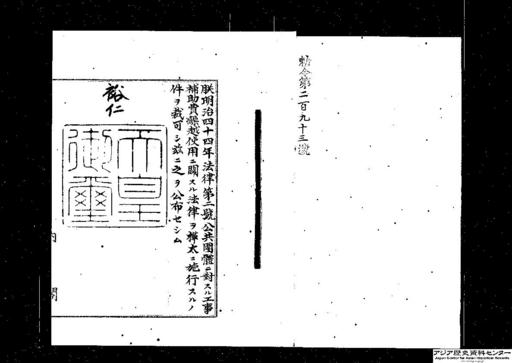 勅令第二百九十三號
朕明治四十四年法律第二號公共團體ニ對スル工事
補助費繰越使用ニ關スル法律ヲ樺太ニ施行スルノ
件ヲ裁可シ玆ニ之ヲ公布セシム
裕仁
天皇
御璽
内
閣
アジア歴史資料センター
Japan Center for Asian Historical Records